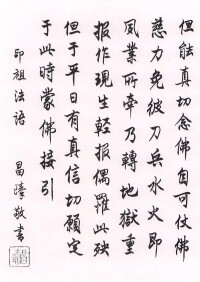 但能真切念佛自可仗佛
慈力免彼刀兵水火即
夙業所牽乃轉地獄重
报作現生輕报偶羅此殃
但于平日有真信切願定
于此時蒙佛接引
印祖法语
昌臻敬書